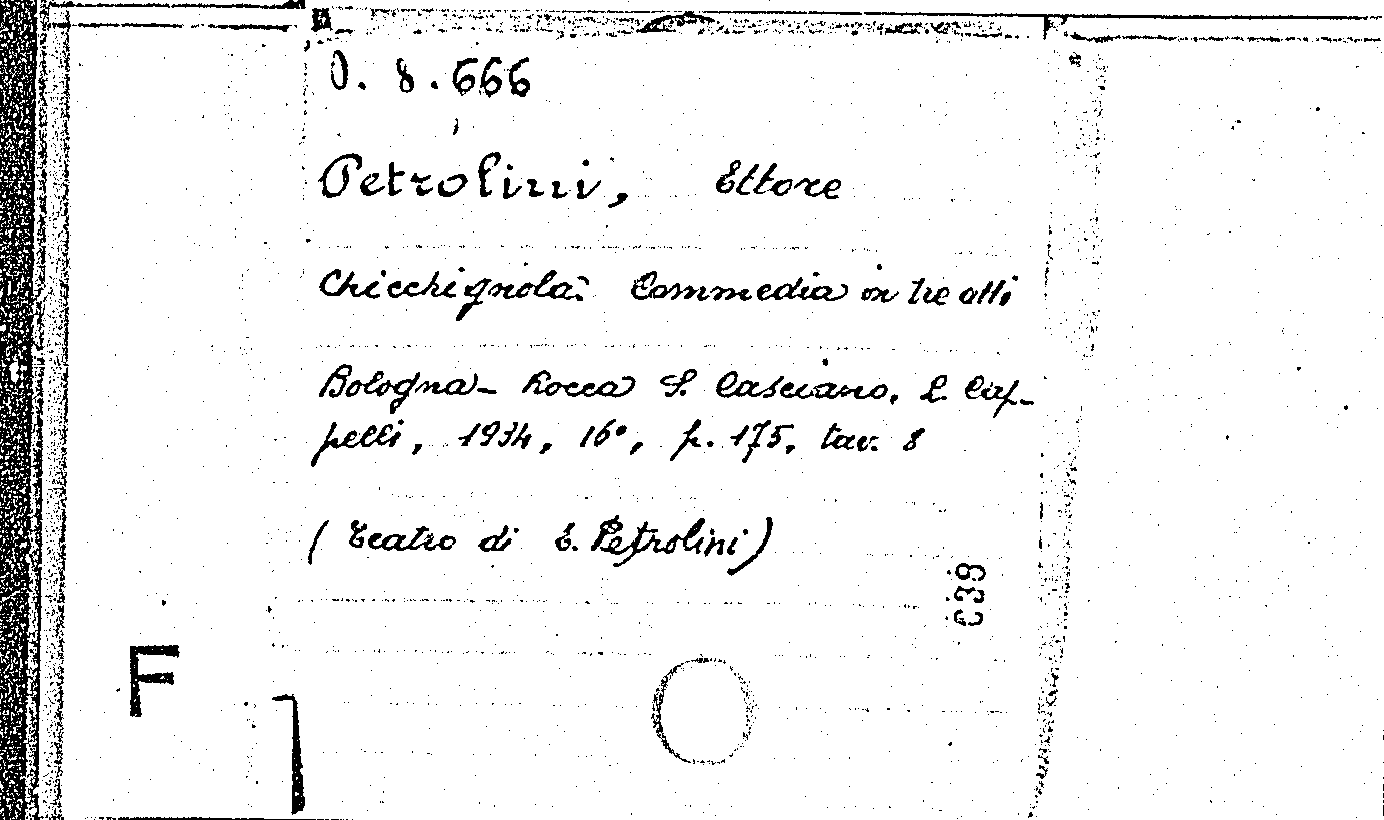 O. 8.666
Petrolini, Ettore
Chicchignola: Commedia in tre atti
Bologna - Rocca S. Casciano, L. Cap-
pelli, 1934, 16°, p. 175, tav. 8
(Teatro di E. Petrolini)
639
F